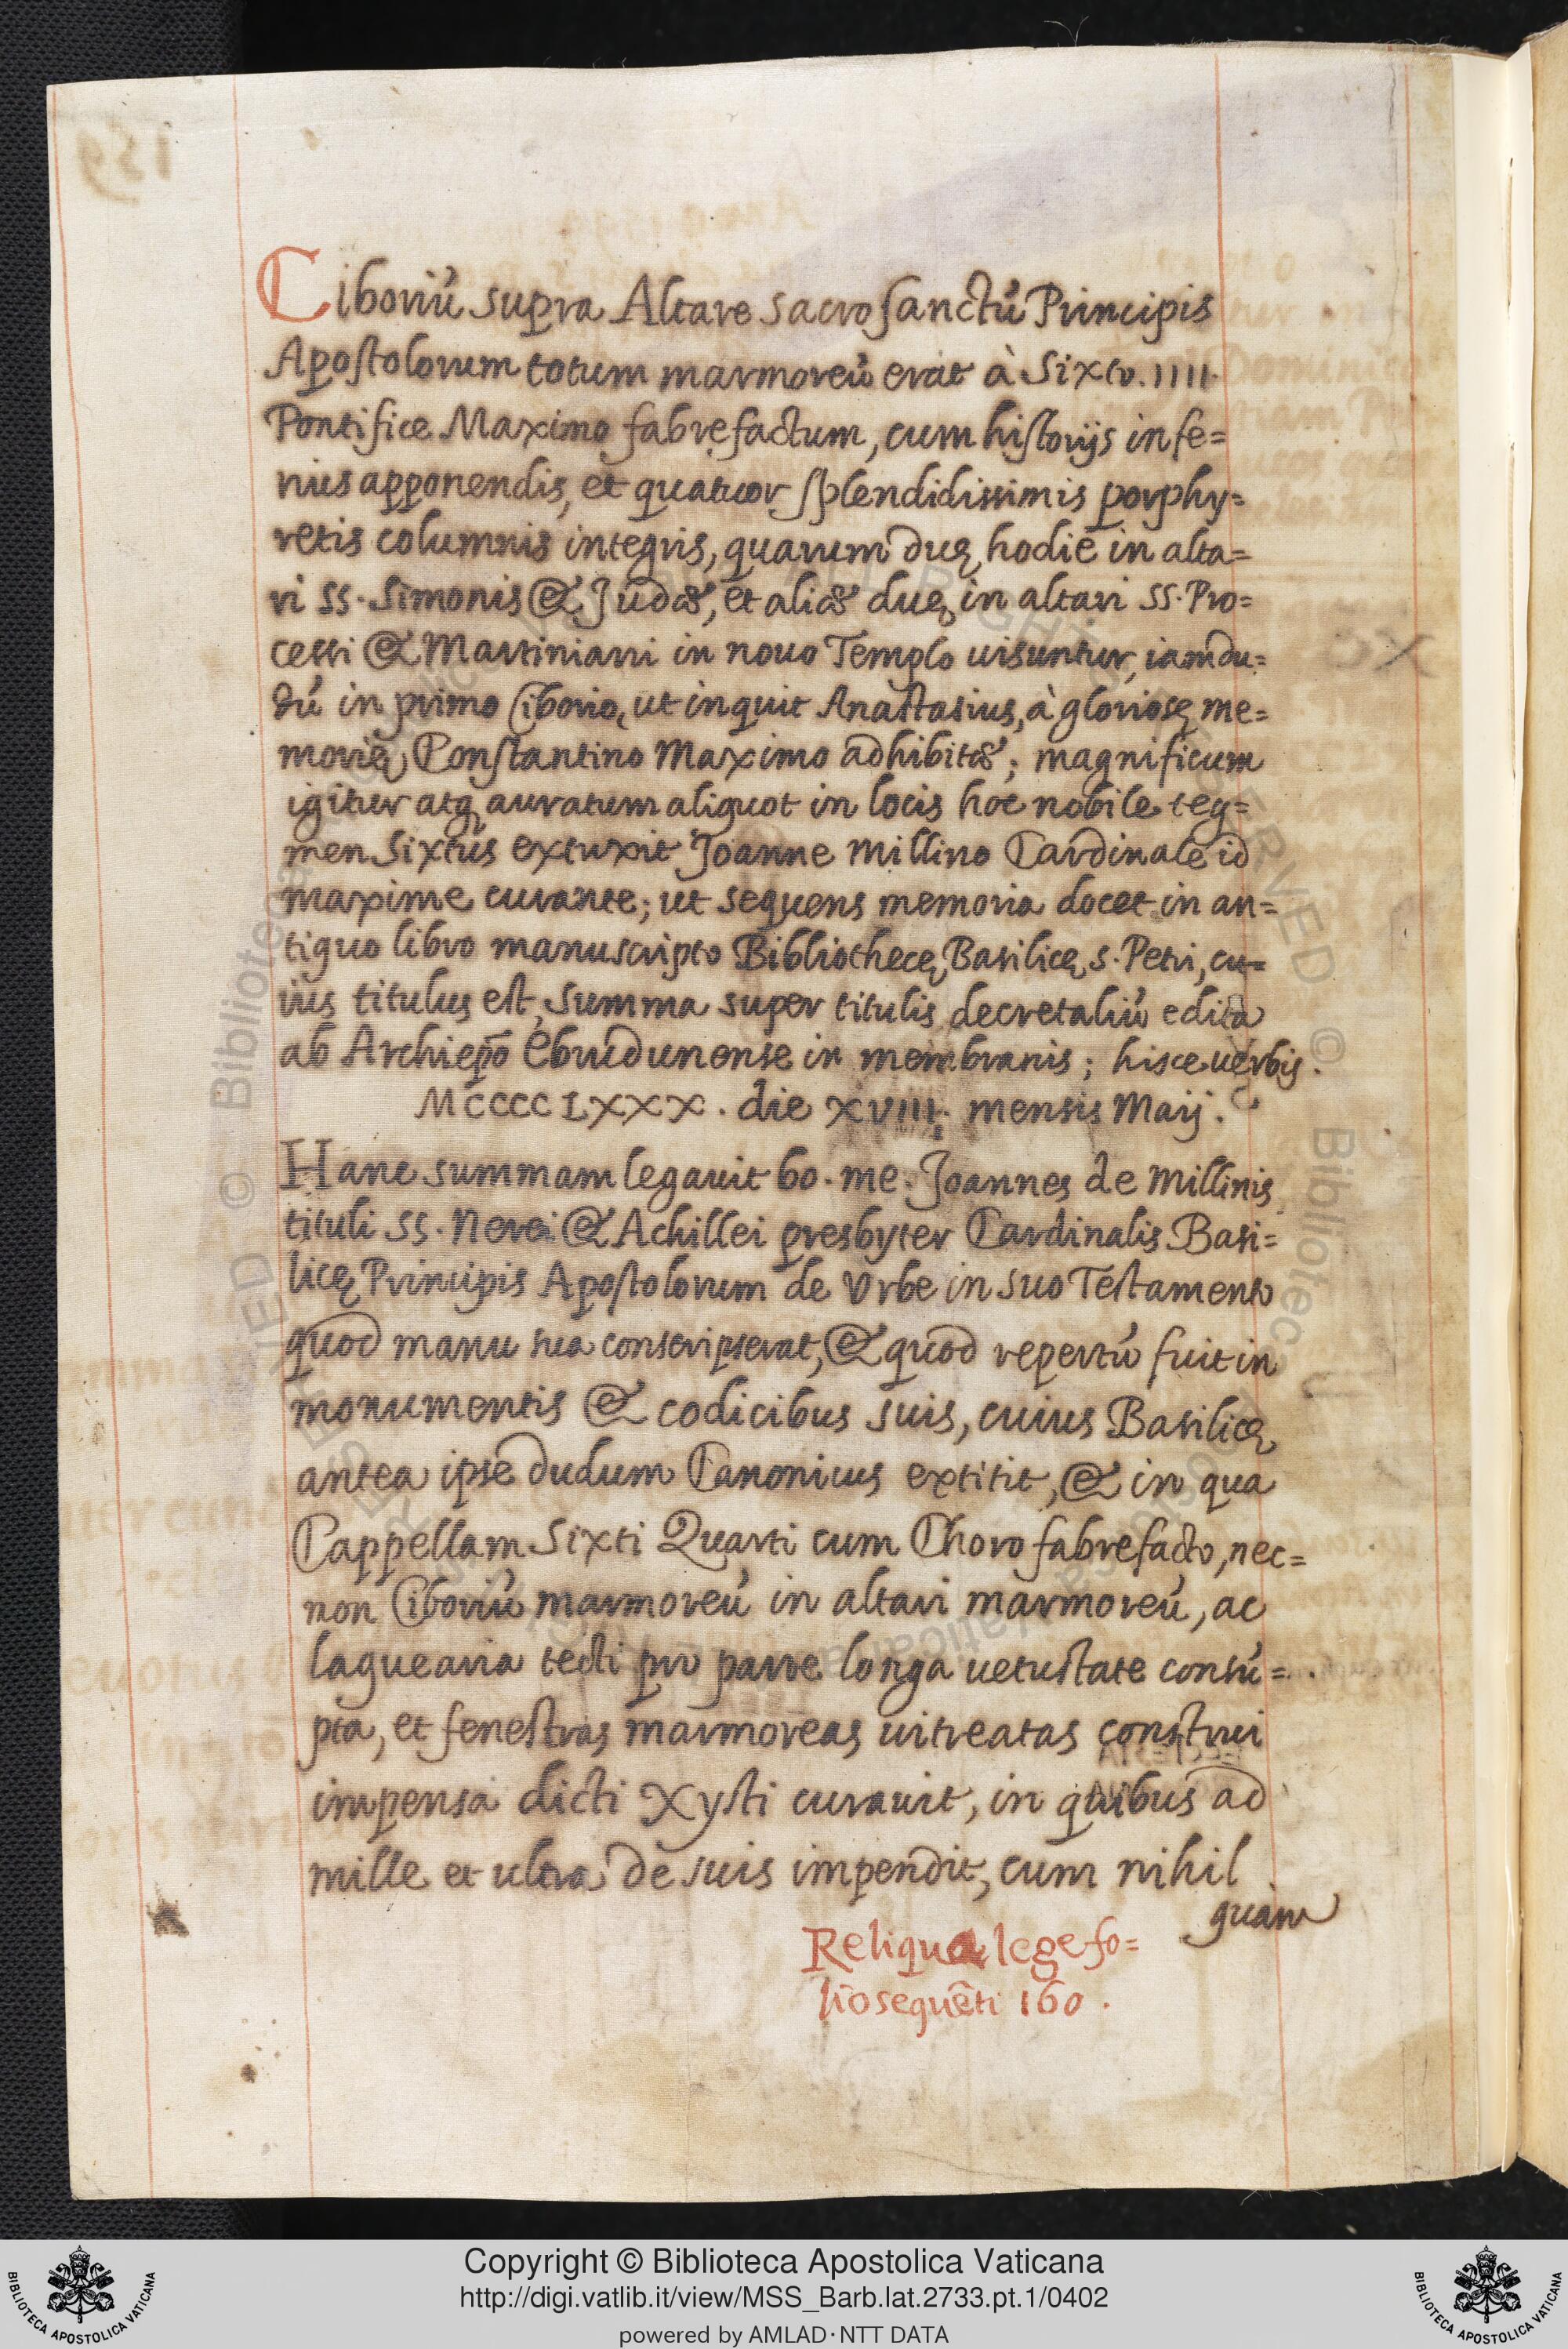 Ciboriú supra Altare sacrosanctú Principis
Apostolorum totum marmoreú erat à Sixto. IIII.
Pontifice Maximo fabrefactum, cum historijs infe=
rius apponendis, et quatuor splendidissimis porphy=
retis columnis integris, quarum duę hodie in alta=
ri SS. Simonis & Judæ, et aliæ duę in altari SS. Pro=
cessi & Martiniani in nouo Templo uisuntur, iamdu=
dú in primo Ciborio, ut inquit Anastasius, à gloriosę me=
morię Constantino Maximo adhibitæ; magnificum
igitur atq auratum aliquot in locis hoc nobile teg=
men Sixtus extuxit Joanne Millino Cardinale id
maxime curante; ut sequens memoria docet in an=
tiquo libro manuscripto Bibliothecę Basilicę S. Petri, cu=
ius titulus est, Summa super titulis decretaliú edita
ab Archiepō Ebrudunense in membranis; hisce uerbis.
MCCCCLXXX. die XVIII. mensis Maij.
Hanc summam legauit bo. me. Joannes de Millinis
tituli SS. Nerei & Achillei presbyter Cardinalis Basi=
licę Principis Apostolorum de Vrbe in suo Testamento
quod manu sua conscripserat, & quod repertú fuit in
monumentis & codicibus suis, cuius Basilicę
antea ipse dudum Canonicus extitit, & in qua
Cappellam Sixti Quarti cum Choro fabrefacto, nec=
non Ciboriú marmoreú in altari marmoreú, ac
laquearia tecti pro parte longa uetustate consú=
pta, et fenestras marmoreas uitreatas construi
impensa dicti Xysti curauit, in quibus ad
mille et ultra de suis impendit, cum nihil
quam
Reliqua lege fo=
lio sequēti 160.
Copyright © Biblioteca Apostolica Vaticana
http://digi.vatlib.it/view/MSS_Barb.lat.2733.pt.1/0402
powered by AMLAD·NTT DATA
BIBLIOTECA APOSTOLICA VATICANA
BIBLIOTECA APOSTOLICA VATICANA